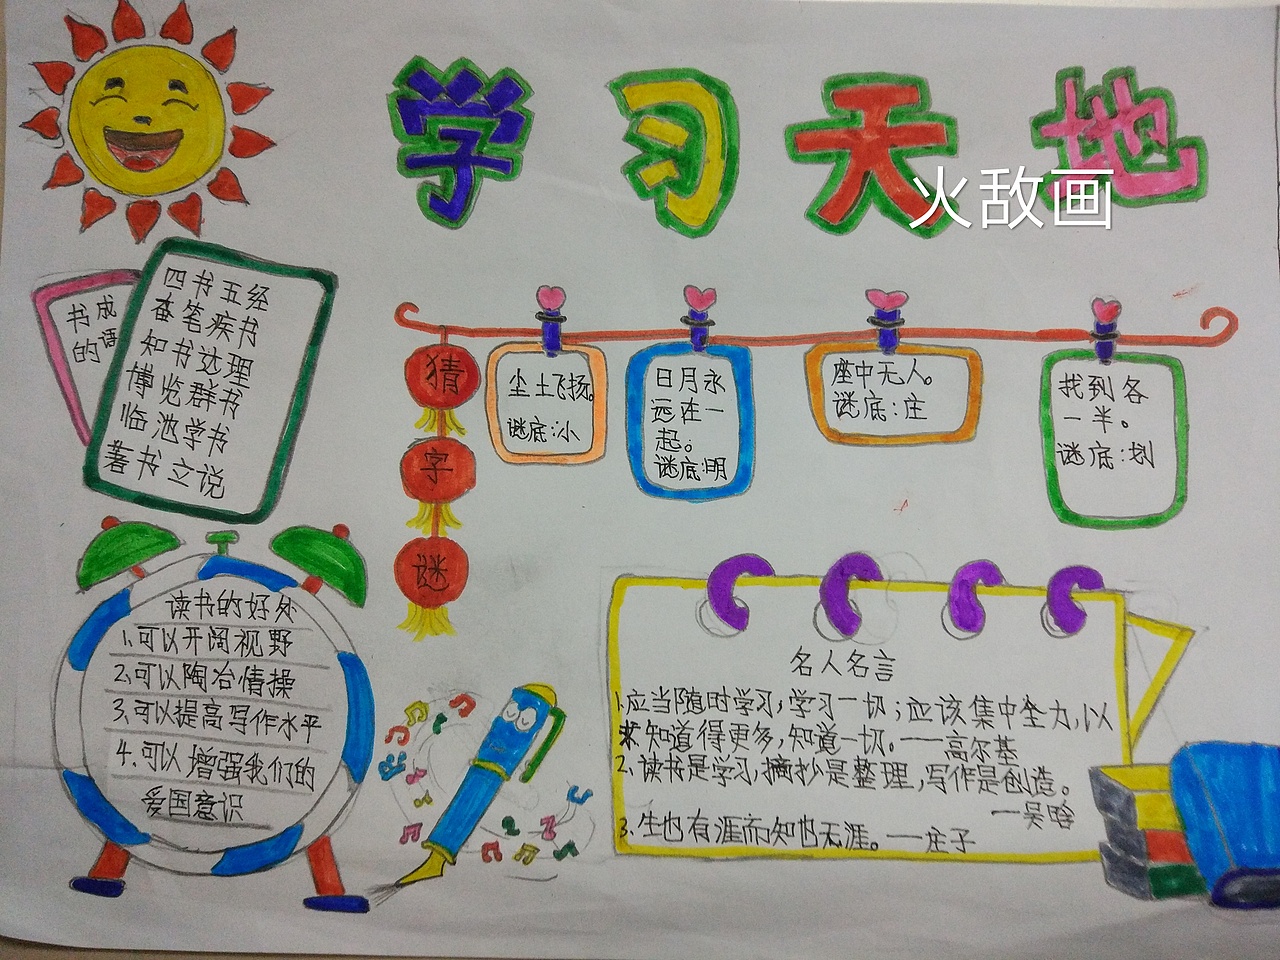 学习天地
火敌画
书成
的语
四书五经
奋笔疾书
知书达理
博览群书
临池学书
著书立说
猜
字
谜
尘土飞扬。
谜底:小
日月永
远在一
起。
谜底:明
座中无人。
谜底:庄
找到各
一半。
谜底:划
读书的好处
1、可以开阔视野
2、可以陶冶情操
3、可以提高写作水平
4、可以增强我们的
爱国意识
名人名言
1、应当随时学习,学习一切;应该集中全力,以
求知道得更多,知道一切。——高尔基
2、读书是学习,摘抄是整理,写作是创造。
—吴晗
3、生也有涯而知也无涯。——庄子